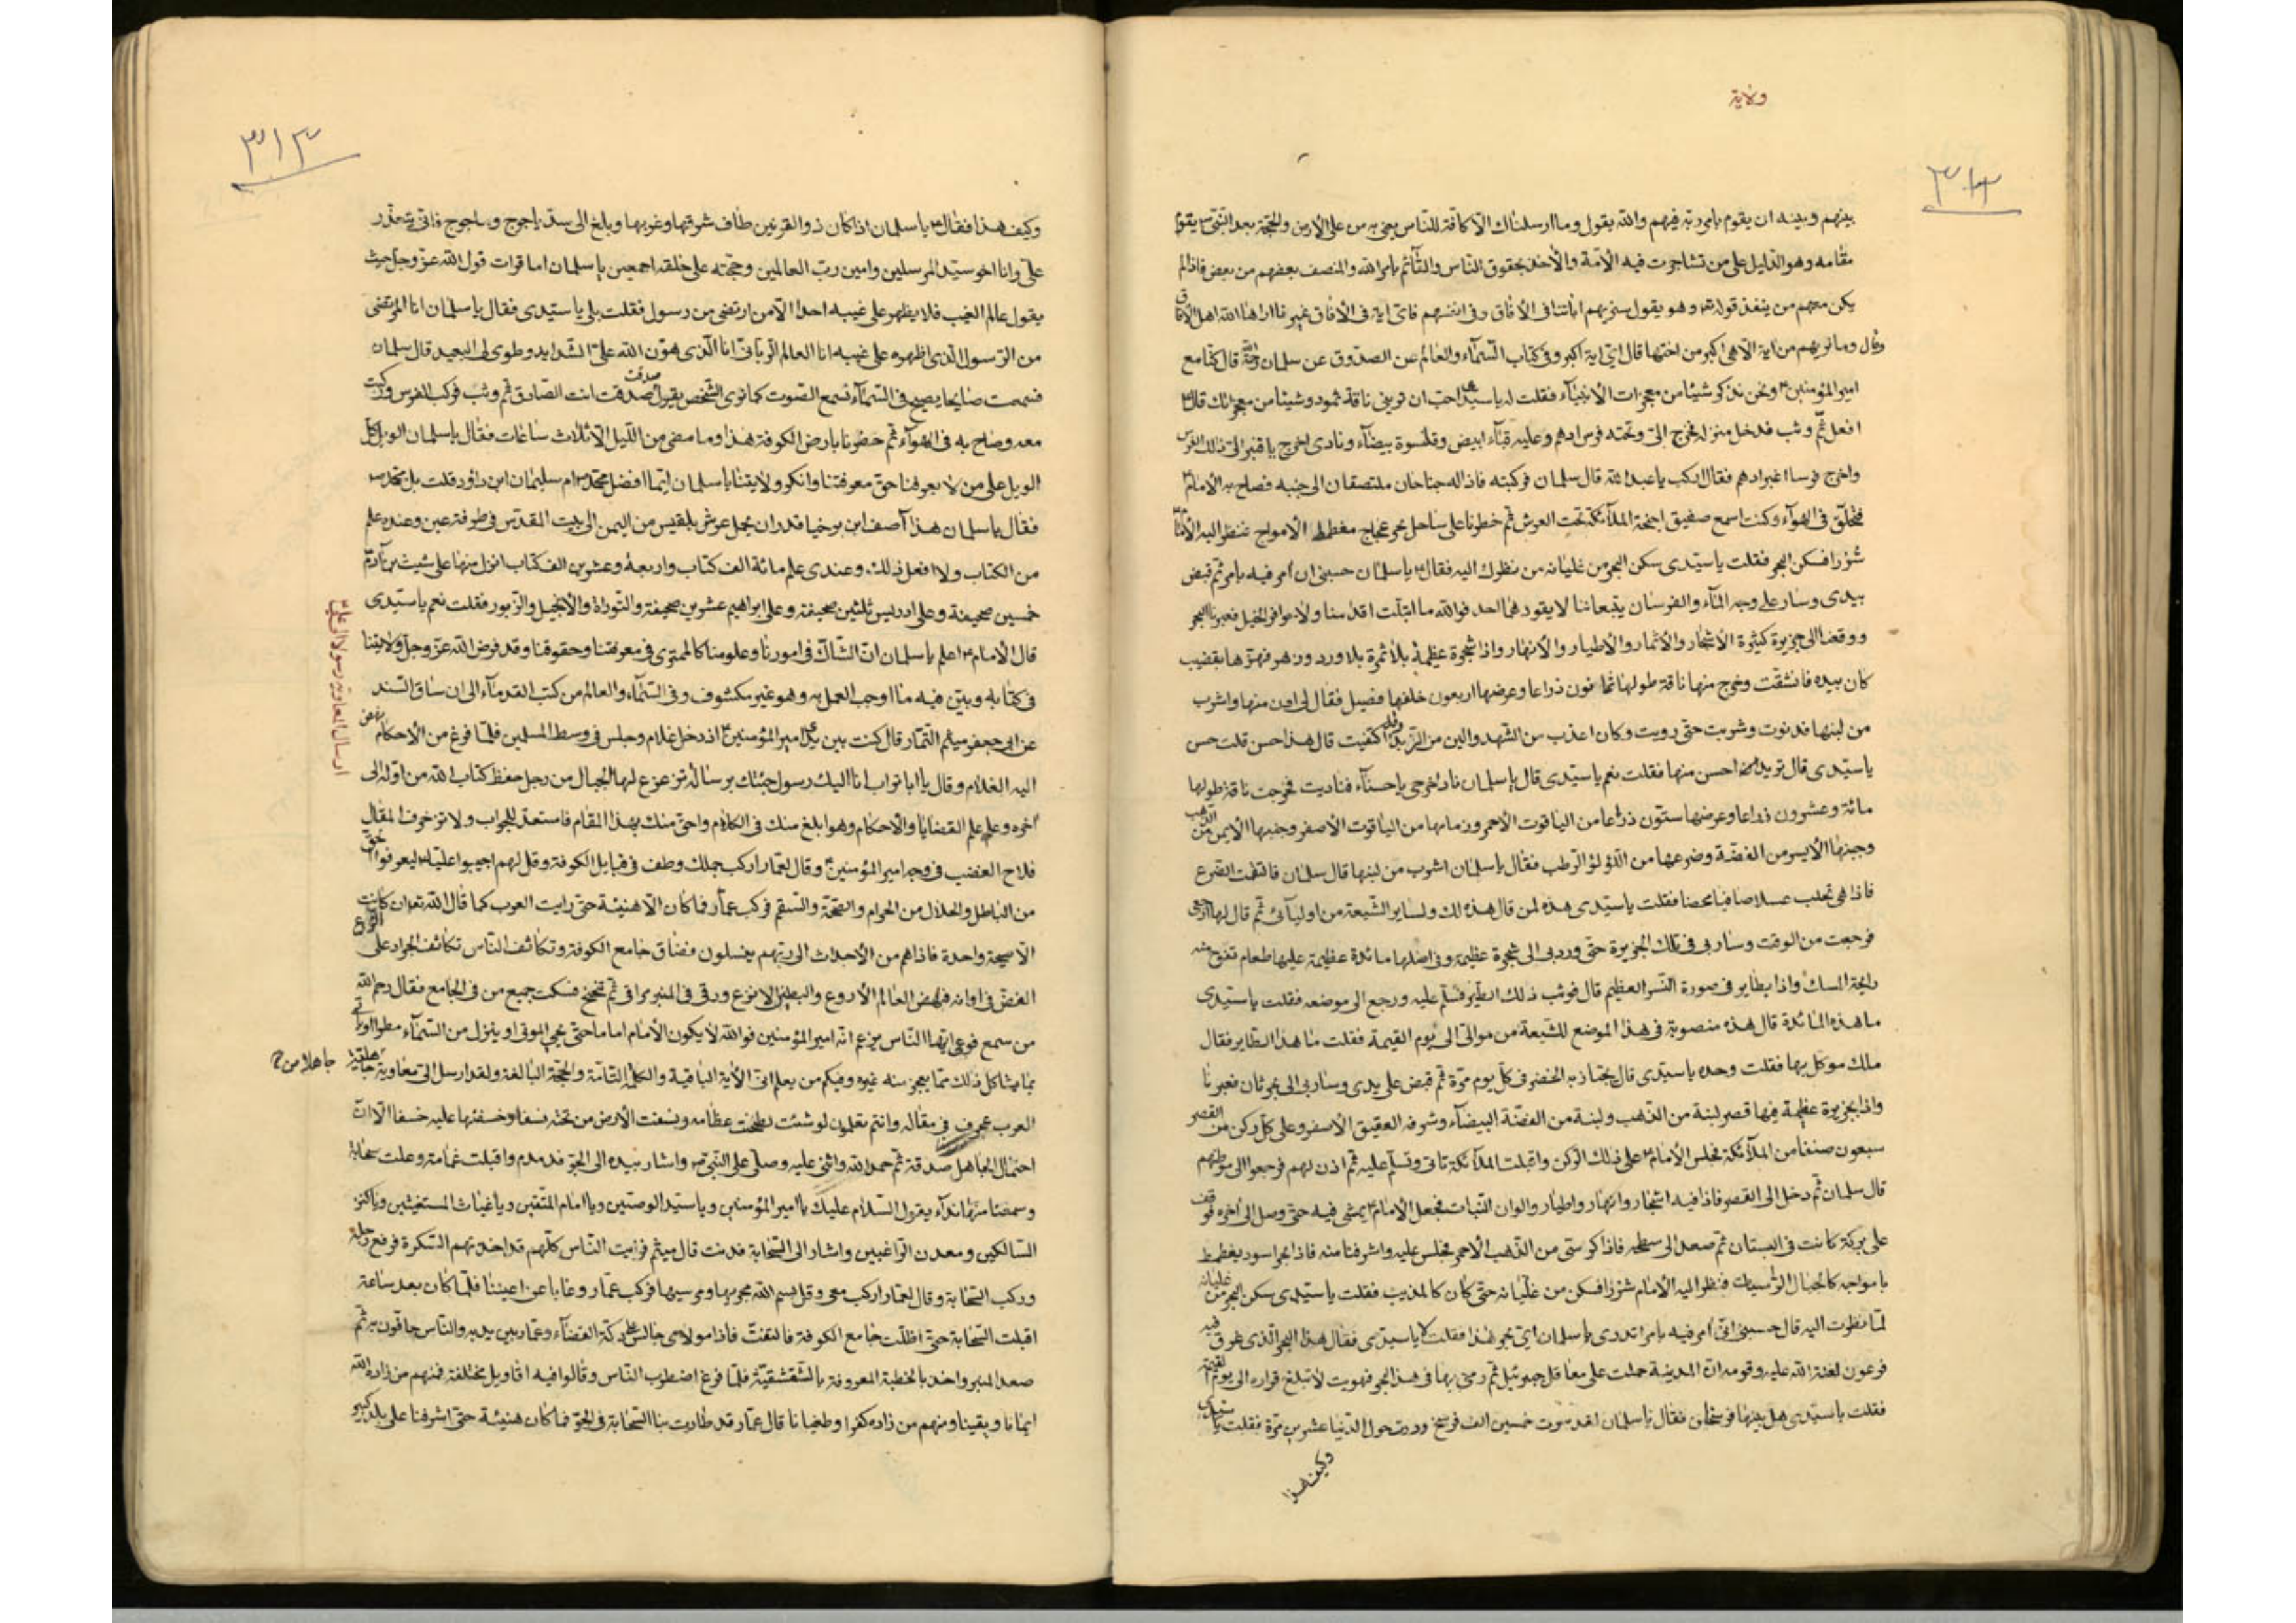 ولاية
٣١٢
بينهم وبينه ان يقوم بامر ربه فيهم والله يقول وما ارسلناك الا كافة للناس يعني به من على الارض والحجة بعد النبي ص يقوم
مقامه وهو الدليل على من تشاجرت فيه الامة والاخذ بحقوق الناس والقائم بامر الله والمنصف بعضهم من بعض فاذا لم
يكن معهم من ينفذ قوله تع وهو يقول سنريهم اياتنا في الافاق وفي انفسهم فاي اية في الافاق غيرنا اراها الله اهل الافاق
وقال وما نريهم من اية الا هي اكبر من اختها قال اي اية اكبر وفي كتاب السماء والعالم عن الصدوق عن سلمان قال كنا مع
امير المؤمنين ع ونحن نذكر شيئا من معجزات الانبياء فقلت له يا سيدي احب ان تريني ناقة ثمود وشيئا من معجزاتك قال ع
افعل ثم وثب فدخل منزله فخرج الي وتحته فرس ادهم وعليه قباء ابيض وقلنسوة بيضاء ونادى اخرج يا قنبر الي ذلك الفرس
واخرج فرسا اغر ادهم فقال اركب يا عبد الله قال سلمان فركبته فاذا له جناحان ملتصقان الى جنبه فصاح به الامام ع
فحلق في الهواء وكنت اسمع صفيق اجنحة الملائكة تحت العرش ثم خطونا على ساحل بحر عجاج مغطمط الامواج فنظر اليه الامام
شزرا فسكن البحر فقلت يا سيدي سكن البحر من غليانه من نظرك اليه فقال ع يا سلمان حسبني ان آمر فيه بامر ثم قبض
بيدي وسار على وجه الماء والفرسان يتبعاننا لا يقودهما احد فوالله ما ابتلت اقدامنا ولا حوافر الخيل فعبرنا البحر
ووقفنا الى جزيرة كثيرة الاشجار والاثمار والاطيار والانهار واذا شجرة عظيمة بلا ثمرة بلا ورد وزهر فهزها بقضيب
كان بيده فانشقت وخرج منها ناقة طولها ثمانون ذراعا وعرضها اربعون خلفها فصيل فقال لي ادن منها واشرب
من لبنها فدنوت وشربت حتى رويت وكان اعذب من الشهد والين من الزبد وقد اكتفيت قال هذا حسن قلت حسن
يا سيدي قال تريد احسن منها فقلت نعم يا سيدي قال يا سلمان ناد اخرجي يا حسناء فناديت فخرجت ناقة طولها
مائة وعشرون ذراعا وعرضها ستون ذراعا من الياقوت الاحمر وزمامها من الياقوت الاصفر وجنبها الايمن من الذهب
وجنبها الايسر من الفضة وضرعها من اللؤلؤ الرطب فقال يا سلمان اشرب من لبنها قال سلمان فالتقمت الضرع
فاذا هي تحلب عسلا صافيا محضا فقلت يا سيدي هذه لمن قال هذه لك ولساير الشيعة من اوليائي ثم قال لها ارجعي
فرجعت من الوقت وسار بي في تلك الجزيرة حتى ورد بي الى شجرة عظيمة وفي اصلها مائدة عظيمة عليها طعام تفوح منه
رايحة المسك واذا بطاير في صورة النسر العظيم قال فوثب ذلك الطير فسلم عليه ورجع الى موضعه فقلت يا سيدي
ما هذه المائدة قال هذه منصوبة في هذا الموضع للشيعة من موالي الى يوم القيمة فقلت ما هذا الطاير فقال
ملك موكل بها فقلت وحده يا سيدي قال يجتاز به الخضر في كل يوم مرة ثم قبض على يدي وسار بي الى بحر ثان فعبرنا
واذا بجزيرة عظيمة فيها قصر لبنة من الذهب ولبنة من الفضة البيضاء وشرفه العقيق الاصفر وعلى كل ركن من القصر
سبعون صنفا من الملائكة فجلس الامام ع على ذلك الركن واقبلت الملائكة تاتي وتسلم عليه ثم اذن لهم فرجعوا الى مواضعهم
قال سلمان ثم دخل الى القصر فاذا فيه اشجار وانهار واطيار والوان النبات فجعل الامام ع يمشي فيه حتى وصل الى آخره فوقف
على بركة كانت في البستان ثم صعد الى سطحه فاذا كرسي من الذهب الاحمر فجلس عليه واشرفنا منه فاذا بحر اسود يغطمط
بامواجه كالجبال الراسيات فنظر اليه الامام شزرا فسكن من غليانه حتى كان كالمذنب فقلت يا سيدي سكن البحر من غليانه
لما نظرت اليه قال حسبني اني آمر فيه بامر اتدري يا سلمان اي بحر هذا فقلت لا يا سيدي فقال هذا البحر الذي غرق فيه
فرعون لعنه الله عليه وقومه ان المدينة حملت على معاقل جبرئيل ثم رمى بها في هذا البحر فهويت لا تبلغ قراره الى يوم القيمة
فقلت يا سيدي هل بينها فرسخان فقال يا سلمان لقد سرت خمسين الف فرسخ ودرت حول الدنيا عشرين مرة فقلت يا سيدي
وكيف هذا
٣١٣
وكيف هذا فقال ع يا سلمان اذا كان ذو القرنين طاف شرقها وغربها وبلغ الى سد ياجوج وماجوج فاني يتعذر
علي وانا اخو سيد المرسلين وامين رب العالمين وحجته على خلقه اجمعين يا سلمان اما قرات قول الله عز وجل حيث
يقول عالم الغيب فلا يظهر على غيبه احدا الا من ارتضى من رسول فقلت بلى يا سيدي فقال يا سلمان انا المرتضى
من الرسول الذي اظهره على غيبه انا العالم الرباني انا الذي هون الله علي الشدايد وطوى لي البعيد قال سلمان
فسمعت صايحا يصيح في السماء نسمع الصوت كما نرى الشخص يقول صدقت صدقت انت الصادق ثم وثب فركب الفرس وركبت
معه وصاح به في الهواء ثم حضرنا بارض الكوفة هذا وما مضى من الليل الا ثلاث ساعات فقال يا سلمان الويل كل
الويل على من لا يعرفنا حق معرفتنا وانكر ولايتنا يا سلمان ايما افضل محمد ص ام سليمان ابن داود قلت بل محمد ص
فقال يا سلمان هذا آصف ابن برخيا قدر ان يحمل عرش بلقيس من اليمن الى بيت المقدس في طرفة عين وعنده علم
من الكتاب ولا افعل ذلك وعندي علم مائة الف كتاب واربعة وعشرين الف كتاب انزل منها على شيث بن آدم
خمسين صحيفة وعلى ادريس ثلثين صحيفة وعلى ابراهيم عشرين صحيفة والتوراة والانجيل والزبور فقلت نعم يا سيدي
قال الامام ع اعلم يا سلمان ان الشاك في امورنا وعلومنا كالممتري في معرفتنا وحقوقنا وقد فرض الله عز وجل ولايتنا
في كتابه وبين فيه ما اوجب العمل به وهو غير مكشوف وفي السماء والعالم من كتب القدماء الى ان ساق السند
عن ابي جعفر ميثم التمار قال كنت بين يدي امير المؤمنين ع اذ دخل غلام وجلس في وسط المسلمين فلما فرغ من الاحكام نهض
اليه الغلام وقال يا ابا تراب انا اليك رسول جئتك برسالة تزعزع لها الجبال من رجل حفظ كتاب الله من اوله الى
آخره وعلم علم القضايا والاحكام وهو ابلغ منك في الكلام واحق منك بهذا المقام فاستعد للجواب ولا تزخرف المقال
فلاح الغضب في وجه امير المؤمنين ع وقال لعمار اركب جملك وطف في قبايل الكوفة وقل لهم اجيبوا عليا ليعرفوا الحق
من الباطل والحلال من الحرام والصحة والسقم فركب عمار فما كان الا هنيئة حتى رايت العرب كما قال الله تع ان كانت
الا صيحة واحدة فاذا هم من الاجداث الى ربهم ينسلون فضاق جامع الكوفة وتكاثف الناس تكاثف الجراد على الزرع
الغض في اوانه فنهض العالم الاروع والبطين الانزع ورقى في المنبر مراقي ثم تنحنح فسكت جميع من في الجامع فقال رحم الله
من سمع فوعى ايها الناس يزعم انه امير المؤمنين فوالله لا يكون الامام اماما حتى يحيي الموتى او ينزل من السماء مطرا او ياتي
بما يشاكل ذلك مما يعجز عنه غيره وفيكم من يعلم اني الاية الباقية والكلمة التامة والحجة البالغة ولقد ارسل الي معاوية جاهلا من جاهلية
العرب عجرف في مقاله وانتم تعلمون لو شئت لطحنت عظامه ونسفت الارض من تحته نسفا وخسفتها عليه خسفا الا ان
احتمال الجاهل صدقة ثم حمد الله واثنى عليه وصلى على النبي ص واشار بيده الى الجو فدمدم واقبلت غمامة وعلت سحابة
وسمعنا منها نداء يقول السلام عليك يا امير المؤمنين ويا سيد الوصيين ويا امام المتقين ويا غياث المستغيثين ويا كنز
السالكين ومعدن الراغبين واشار الى السحابة فدنت قال ميثم فرايت الناس كلهم قد اخذتهم السكرة فرفع رجله
وركب السحابة وقال لعمار اركب معي وقل بسم الله مجريها ومرسيها فركب عمار وغابا عن اعيننا فلما كان بعد ساعة
اقبلت السحابة حتى اظلت جامع الكوفة فالتفت فاذا مولاي جالس على دكة القضاء وعمار بين يديه والناس حافون به ثم
صعد المنبر واخذ بالخطبة المعروفة بالشقشقية فلما فرغ اضطرب الناس وقالوا فيه اقاويل مختلفة فمنهم من زاده الله
ايمانا ويقينا ومنهم من زاده كفرا وطغيانا قال عمار قد طارت بنا السحابة في الجو فما كان هنيئة حتى اشرفنا على بلد كبير
ارسال المعاوية رسولا الى علي ع
جاهلا من خ